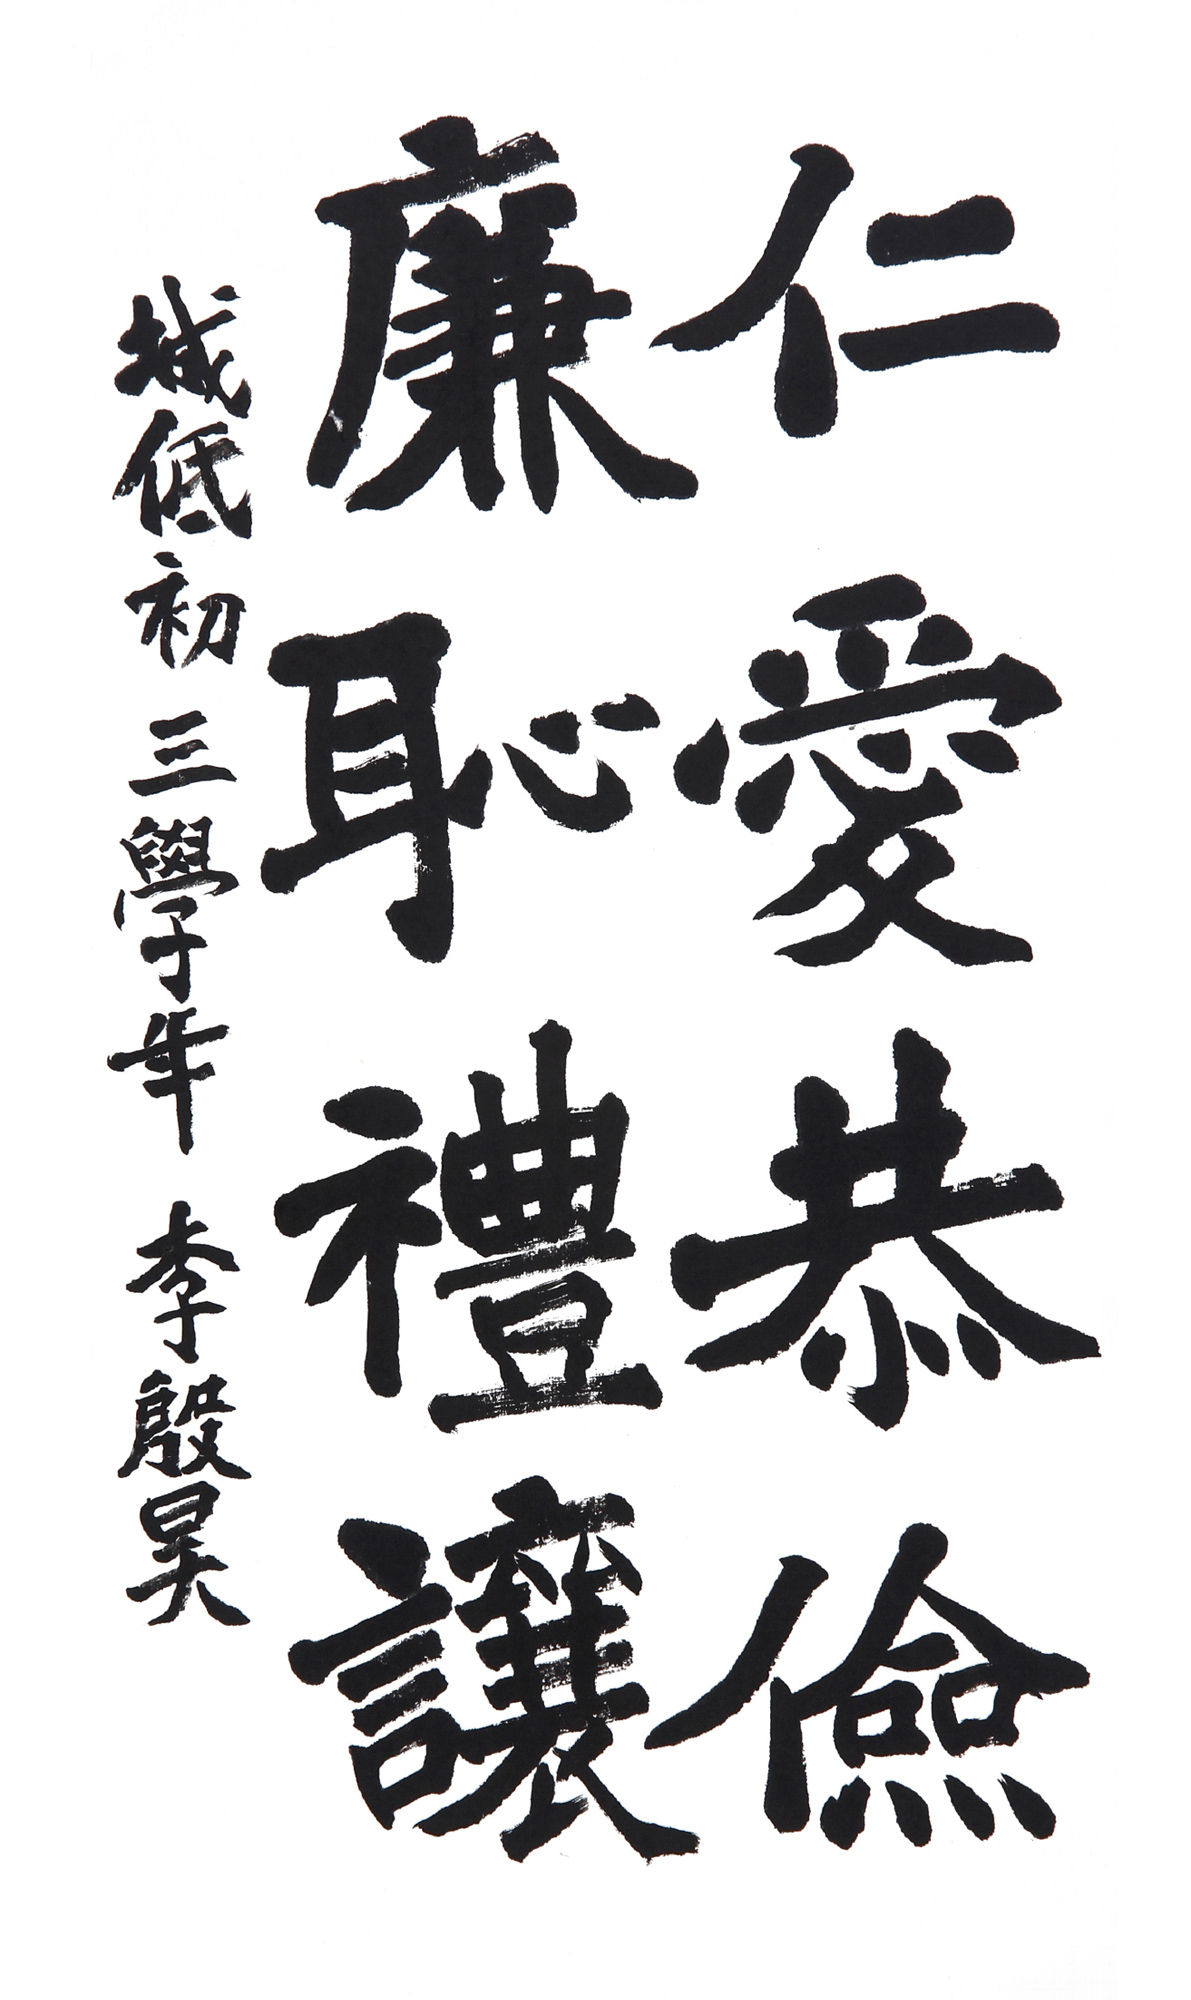 仁愛恭儉
廉恥禮讓
城低初 三學年 李殷昊